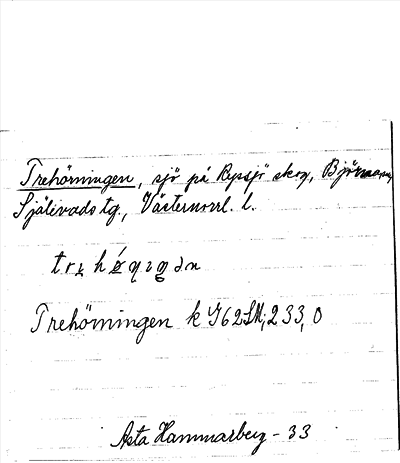 Trehörningen, sjö på Rysjö skog, Björna sn,
Själevads tg., Västernorrl. l.
Trehörningen k J62SM; 233, 0
Asta Hammarberg - 33